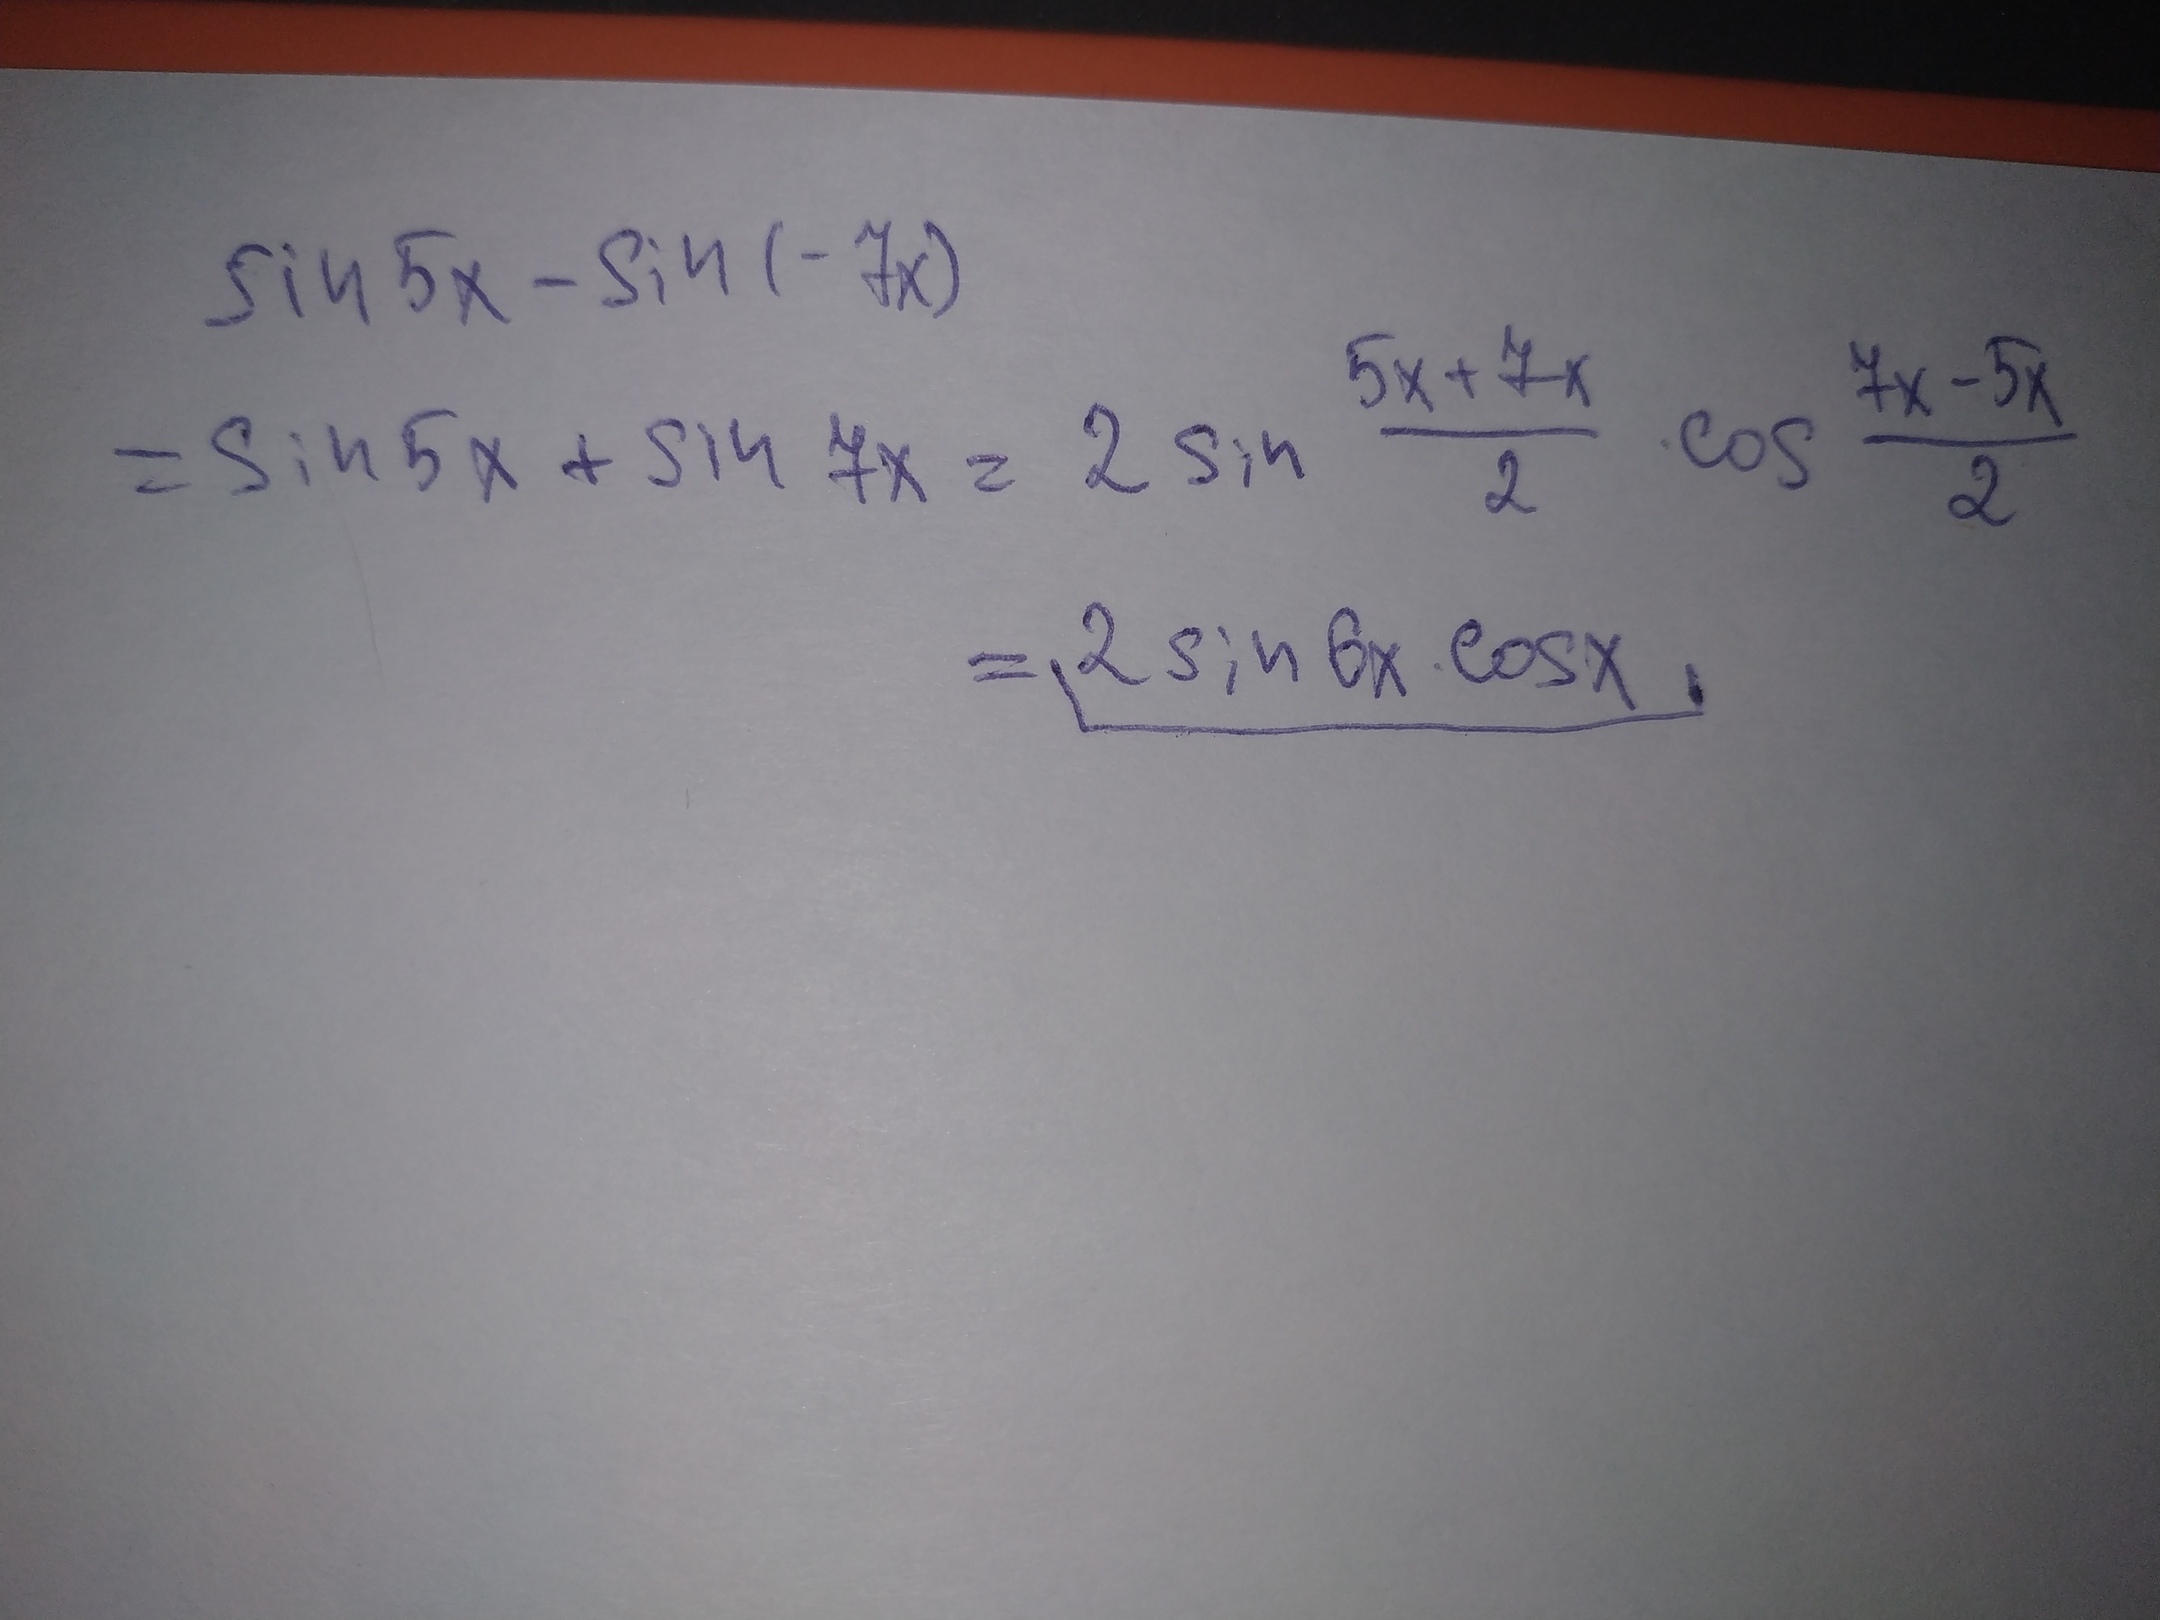 sin 5x - sin (-7x)
= sin 5x + sin 7x = 2 sin \frac{5x+7x}{2} · cos \frac{7x-5x}{2}
= 2 sin 6x · cos x